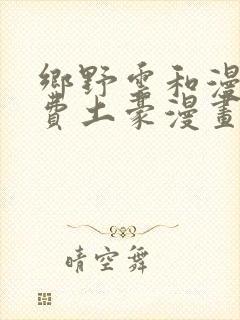 鄉野雲和漫
費土豪漫畫
晴空舞